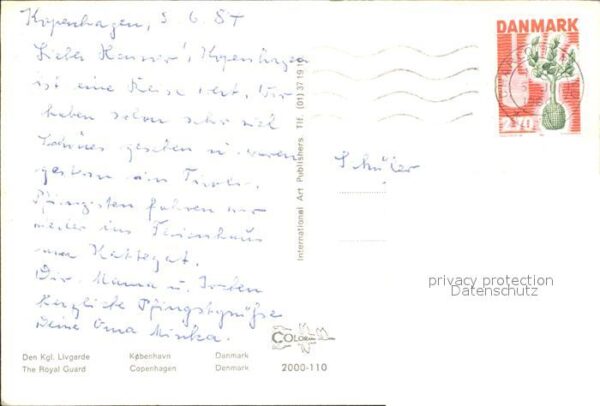 Kopenhagen, 5. 6. 87
Lieber Hannis!, Kopenhagen
ist eine Reise wert. Wir
haben schon sehr viel
Schönes gesehen u. waren
gestern im Tivoli.
Pfingsten fahren wir
weiter ins Ferienhaus
am Kattegat.
Dir, Mama u. Torsten
herzliche Pfingstgrüße
Deine Oma Minka.
Schüler
DANMARK
2.70
International Art Publishers. Tlf. (01) 37 19 19
privacy protection
Datenschutz
COLOR
Den Kgl. Livgarde København Danmark
The Royal Guard Copenhagen Denmark 2000-110